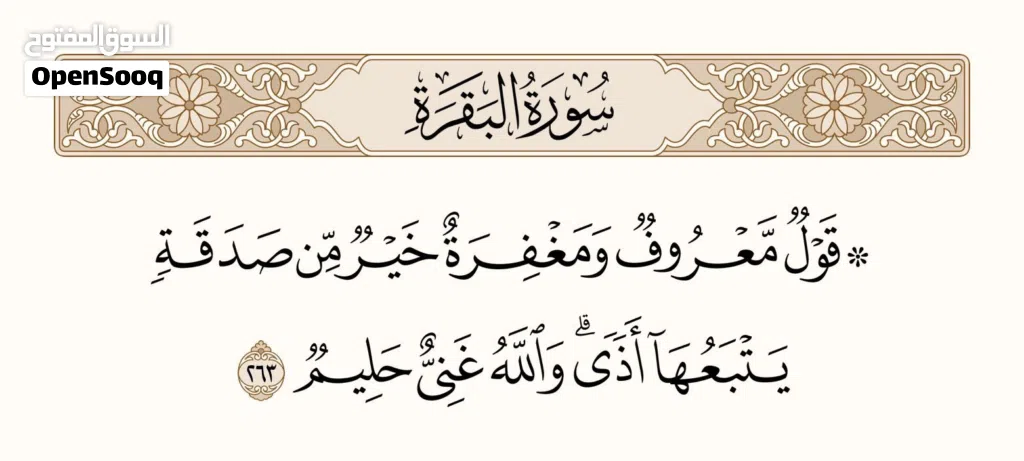 السوق المفتوح
OpenSooq
سُورَةُ البَقَرَةِ
۞ قَوۡلٞ مَّعۡرُوفٞ وَمَغۡفِرَةٌ خَيۡرٞ مِّن صَدَقَةٖ
يَتۡبَعُهَآ أَذٗىۗ وَٱللَّهُ غَنِيٌّ حَلِيمٞ ٢٦٣